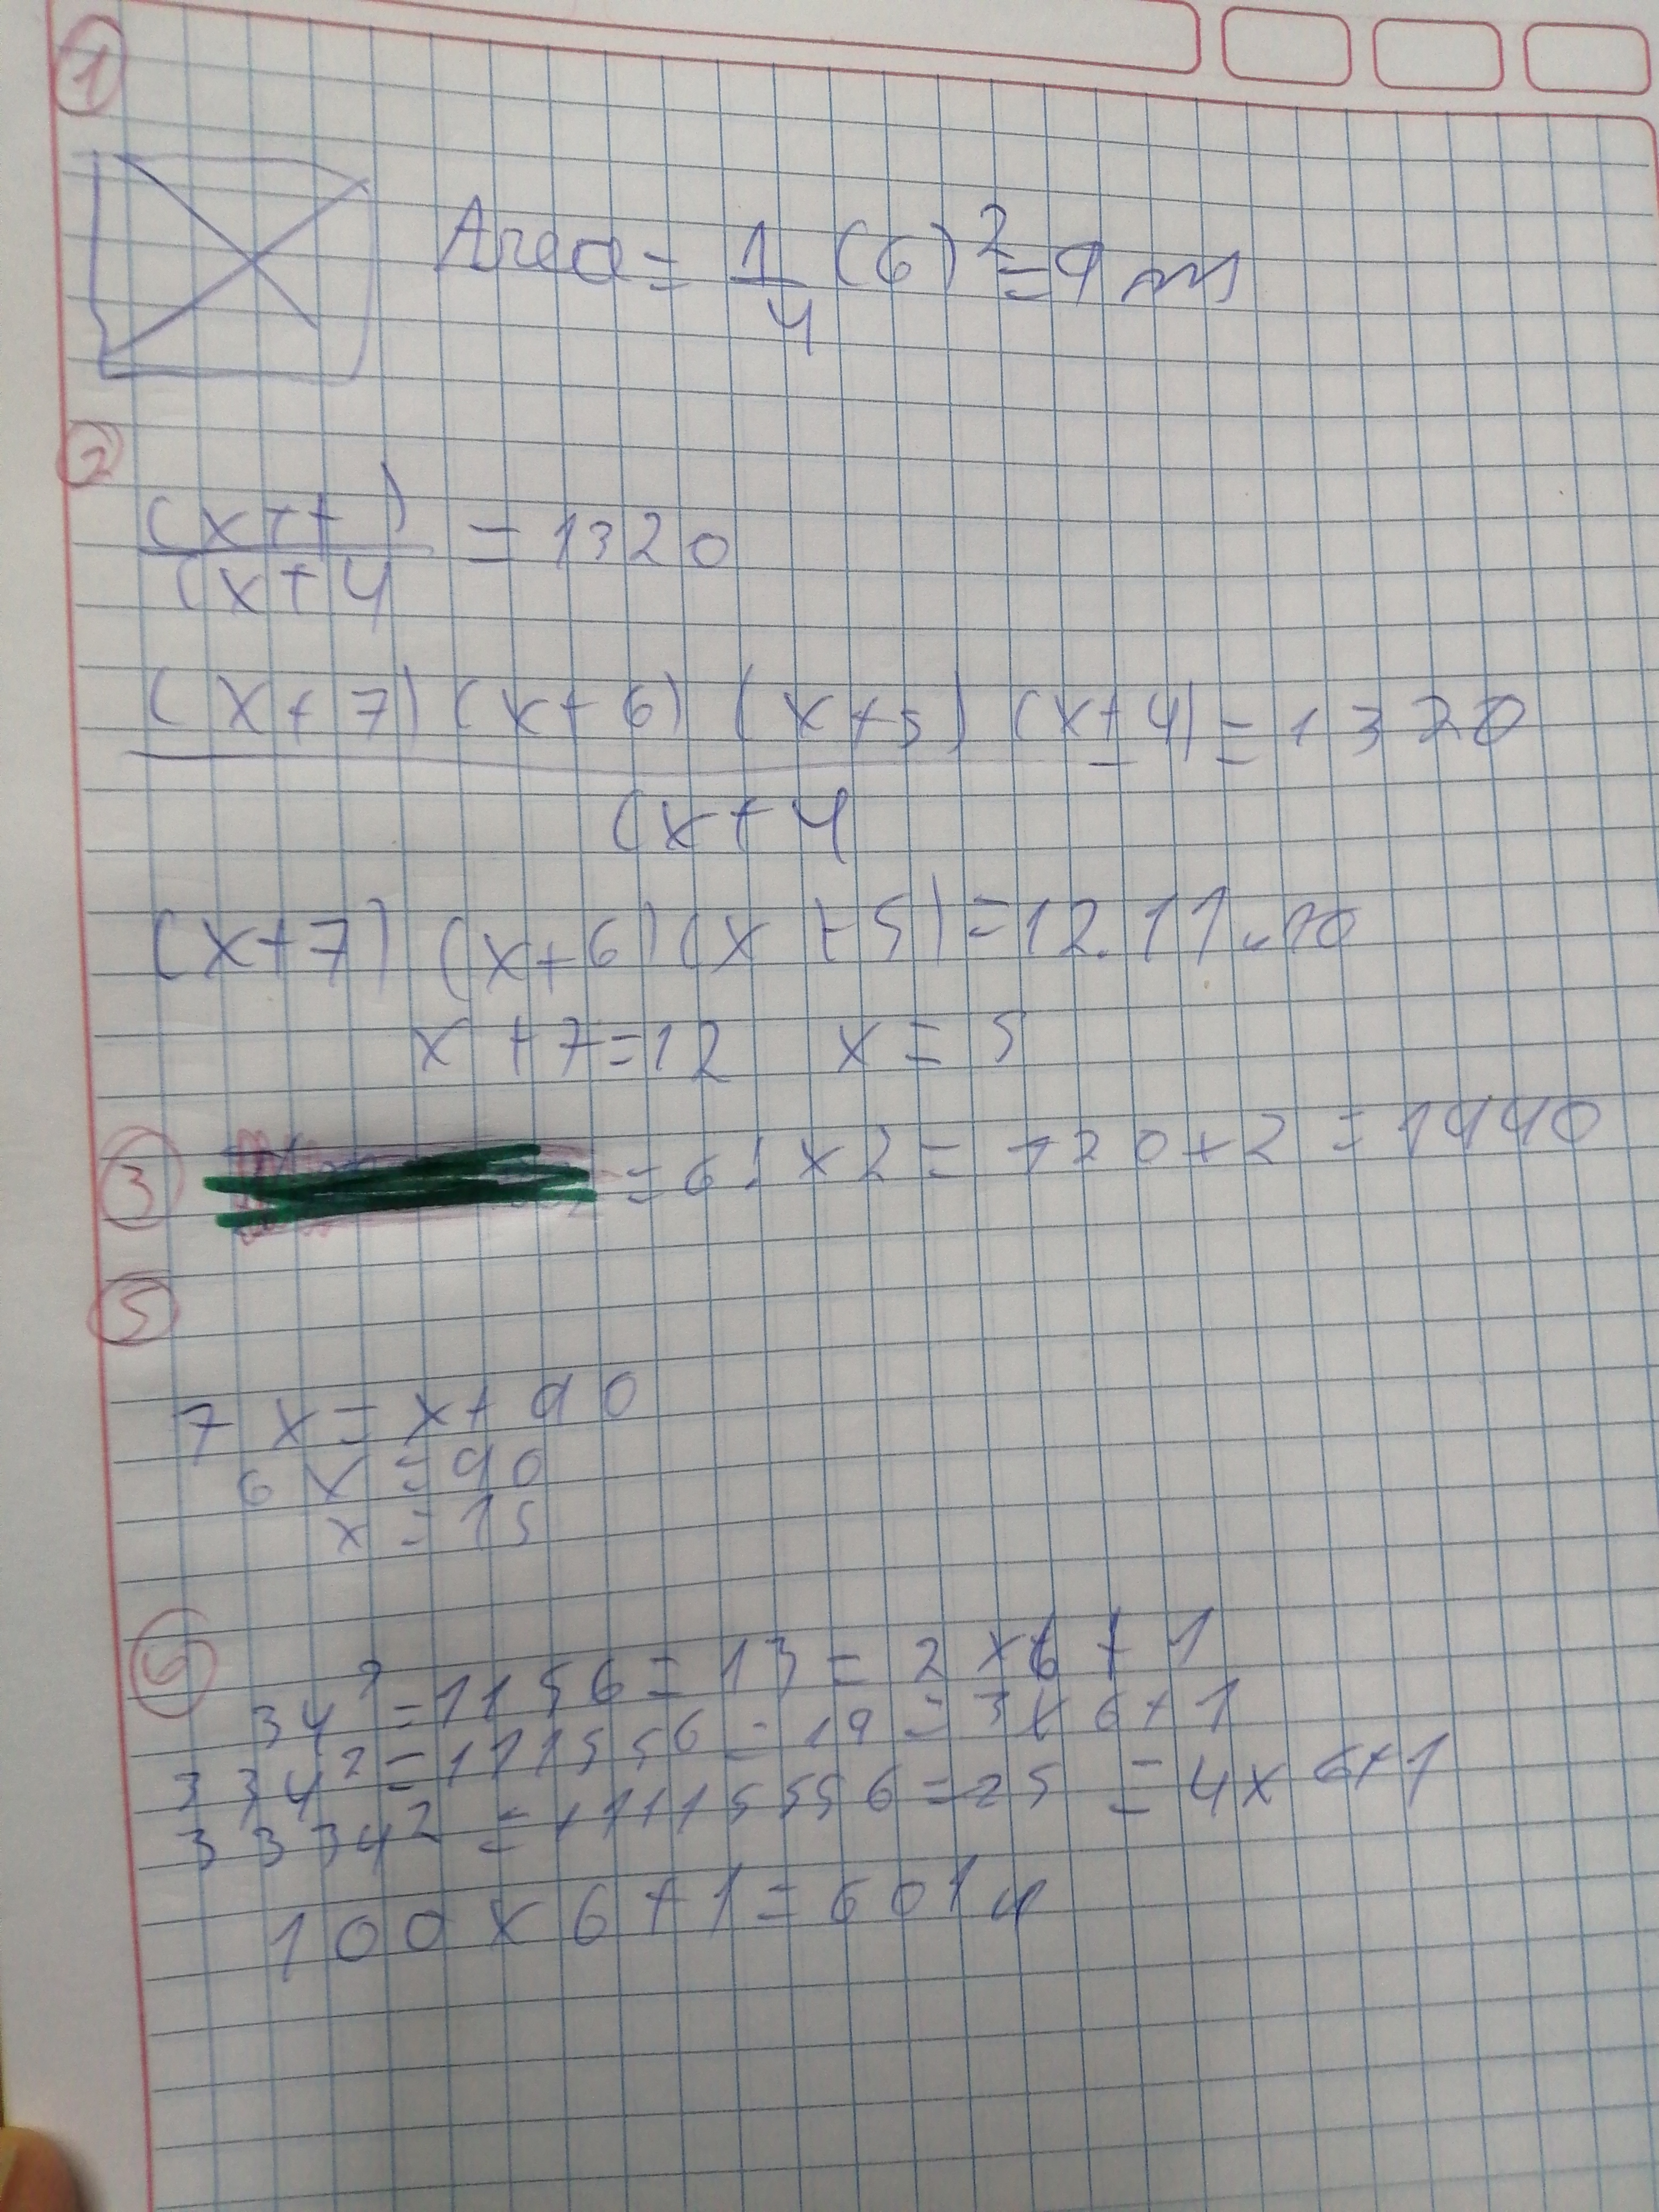 1
Area = 1/4 (6)² = 9 m
2
(x+7) / (x+4 = 1320
(x+7)(x+6)(x+5)(x+4) = 1320
(x+4
(x+7)(x+6)(x+5) = 12.11.10
x+7=12 x=5
3 = 6! x2 = 720x2 = 1440
5
7x = x+90
6x = 90
x = 15
6
34² = 1156 = 13 = 2x6+1
334² = 111556 = 19 = 3x6+1
3334² = 11115556 = 25 = 4x6+1
100x6+1=601